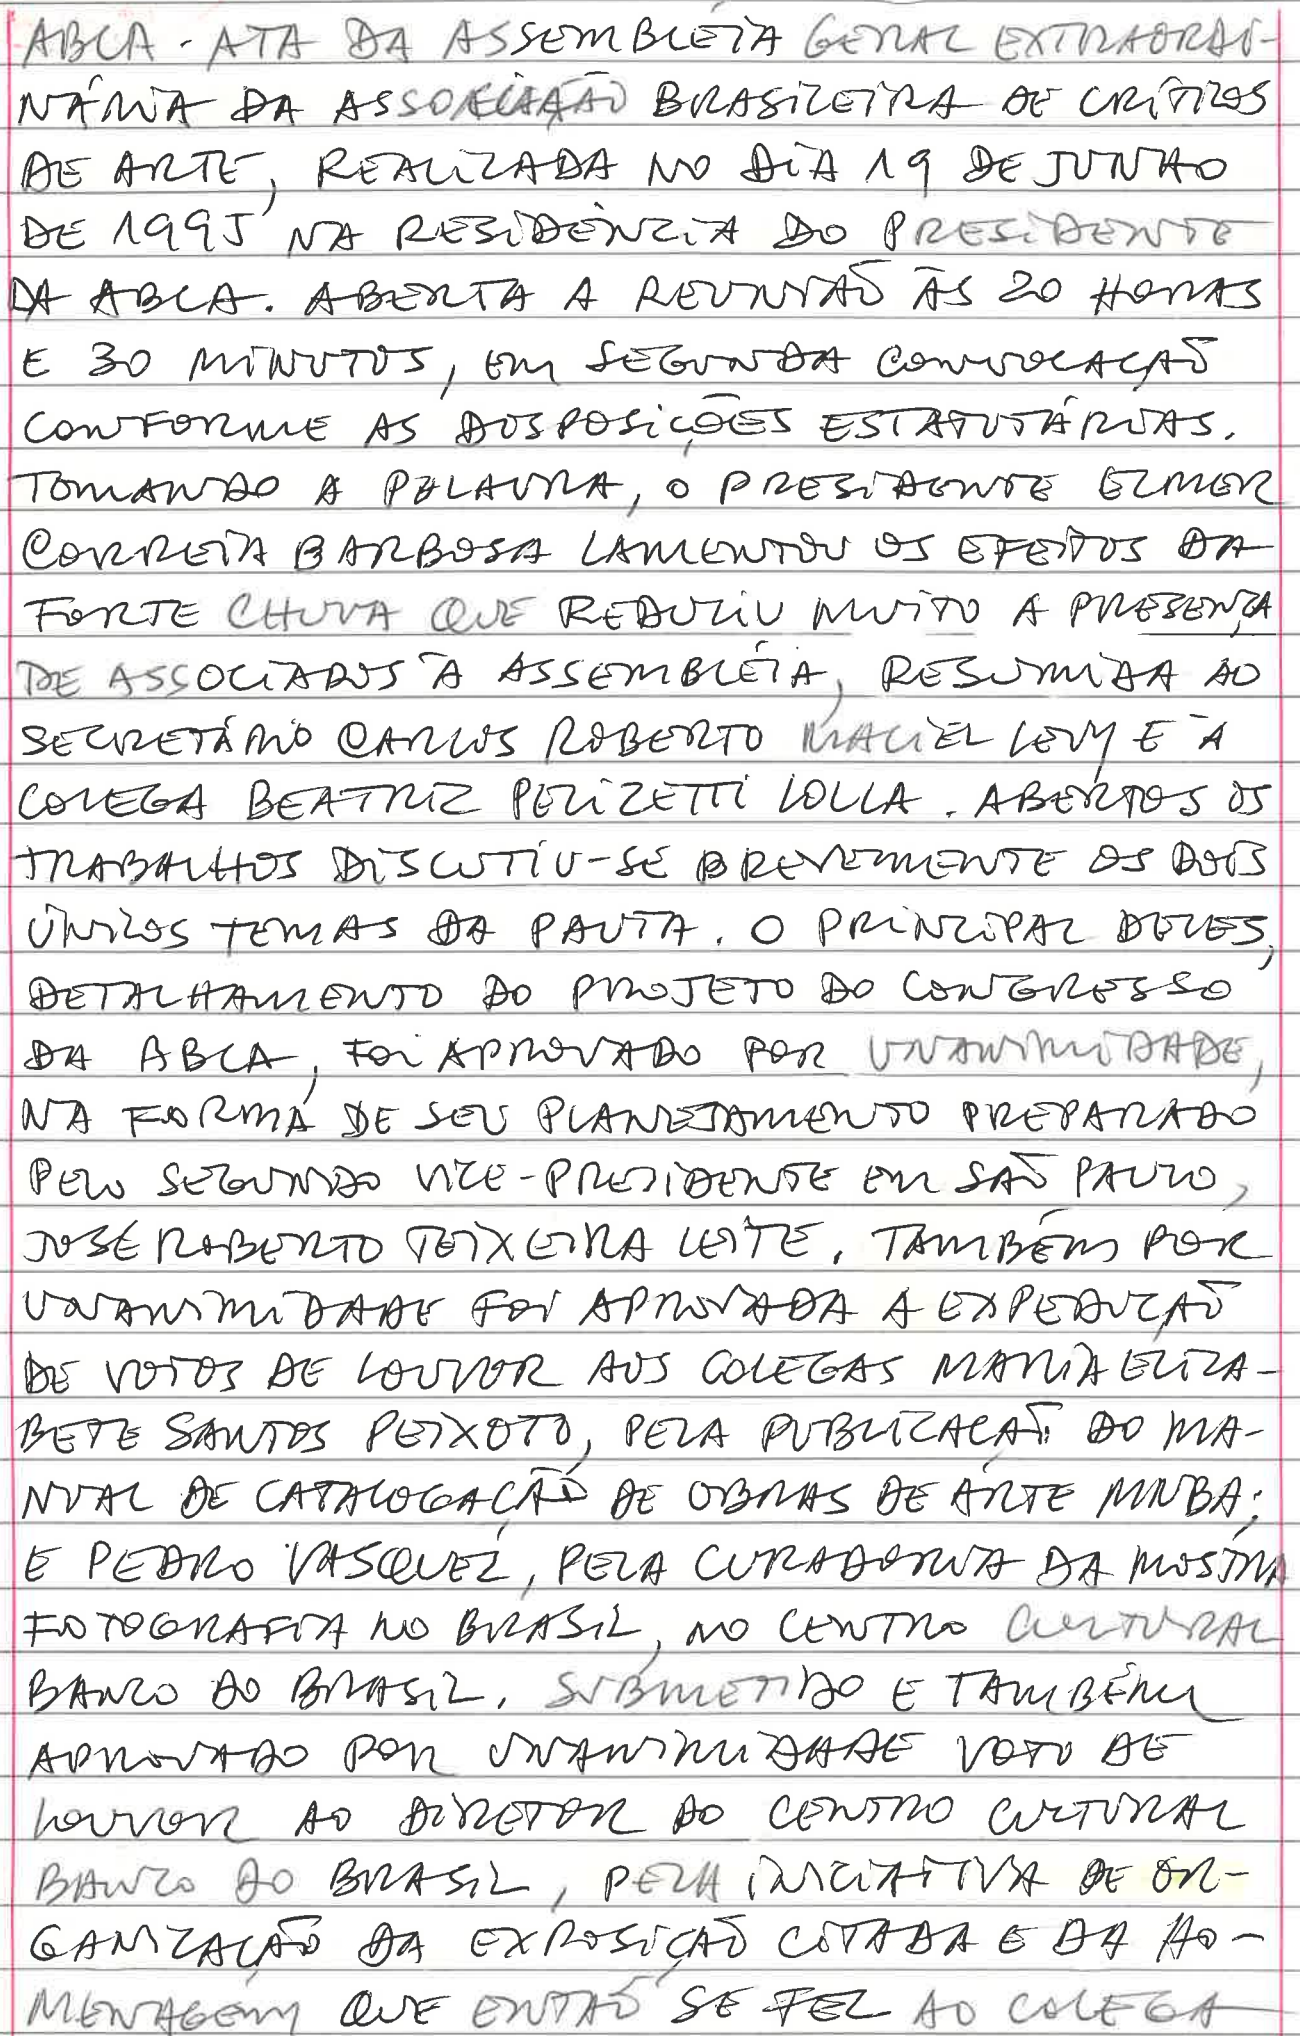 ABCA - ATA DA ASSEMBLÉIA GERAL EXTRAORDI-
NÁRIA DA ASSOCIAÇÃO BRASILEIRA DE CRÍTICOS
DE ARTE, REALIZADA NO DIA 19 DE JUNHO
DE 1995 NA RESIDÊNCIA DO PRESIDENTE
DA ABCA. ABERTA A REUNIÃO ÀS 20 HORAS
E 30 MINUTOS, EM SEGUNDA CONVOCAÇÃO
CONFORME AS DISPOSIÇÕES ESTATUTÁRIAS.
TOMANDO A PALAVRA, O PRESIDENTE ELMER
CORREIA BARBOSA LAMENTOU OS EFEITOS DA
FORTE CHUVA QUE REDUZIU MUITO A PRESENÇA
DE ASSOCIADOS À ASSEMBLÉIA, RESUMIDA AO
SECRETÁRIO CARLOS ROBERTO MACIEL LEVY E À
COLEGA BEATRIZ PELIZETTI LOLLA. ABERTOS OS
TRABALHOS DISCUTIU-SE BREVEMENTE OS DOIS
ÚNICOS TEMAS DA PAUTA. O PRINCIPAL DELES,
DETALHAMENTO DO PROJETO DO CONGRESSO
DA ABCA, FOI APROVADO POR UNANIMIDADE,
NA FORMA DE SEU PLANEJAMENTO PREPARADO
PELO SEGUNDO VICE-PRESIDENTE EM SÃO PAULO,
JOSÉ ROBERTO TEIXEIRA LEITE. TAMBÉM POR
UNANIMIDADE FOI APROVADA A EXPEDIÇÃO
DE VOTOS DE LOUVOR AOS COLEGAS MARIA ELIZA-
BETE SANTOS PEIXOTO, PELA PUBLICAÇÃO DO MA-
NUAL DE CATALOGAÇÃO DE OBRAS DE ARTE MNBA;
E PEDRO VASQUEZ, PELA CURADORIA DA MOSTRA
FOTOGRAFIA NO BRASIL, NO CENTRO CULTURAL
BANCO DO BRASIL. SUBMETIDO E TAMBÉM
APROVADO POR UNANIMIDADE VOTO DE
LOUVOR AO DIRETOR DO CENTRO CULTURAL
BANCO DO BRASIL, PELA INICIATIVA DE OR-
GANIZAÇÃO DA EXPOSIÇÃO CITADA E DA HO-
MENAGEM QUE ENTÃO SE FEZ AO COLEGA